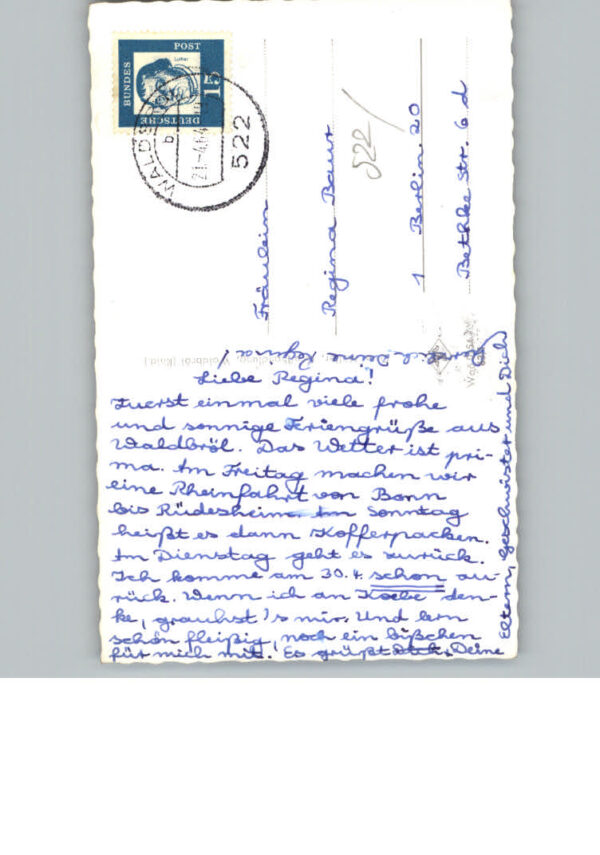 DEUTSCHE
BUNDES
POST
15
Luther
522
Fräulein
Regina Baur
522/
1 Berlin 20
Bethke Str. 6 d
Liebe Regina!
Zuerst einmal viele frohe
und sonnige Feriengrüße aus
Waldbröl. Das Wetter ist pri-
ma. Am Freitag machen wir
eine Rheinfahrt von Bonn
bis Rüdesheim. Am Sonntag
heißt es dann Kofferpacken.
Am Dienstag geht es zurück.
Ich komme am 30.4. schon zu-
rück. Wenn ich an Koebe den-
ke, graushst's mir. Und lern
schön fleißig, noch ein bißchen
für mich mit. Es grüßt Dich, Deine
Eltern, Geschwister und Dich
Deine Regina!